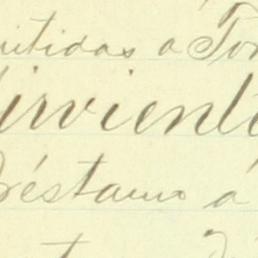 uitidas a Ton
irviente
réstamo á